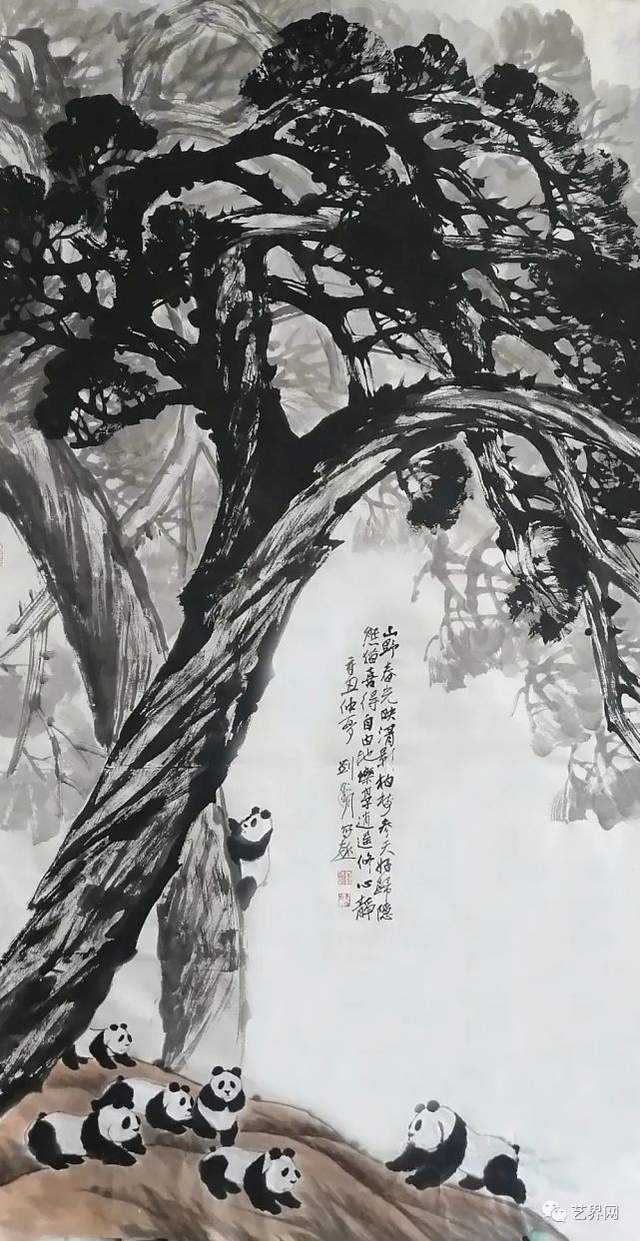 山野春光映清影柏树参天好歸隐
熊猫喜得自由地樂享逍遥修心静
辛丑仲夏
艺界网